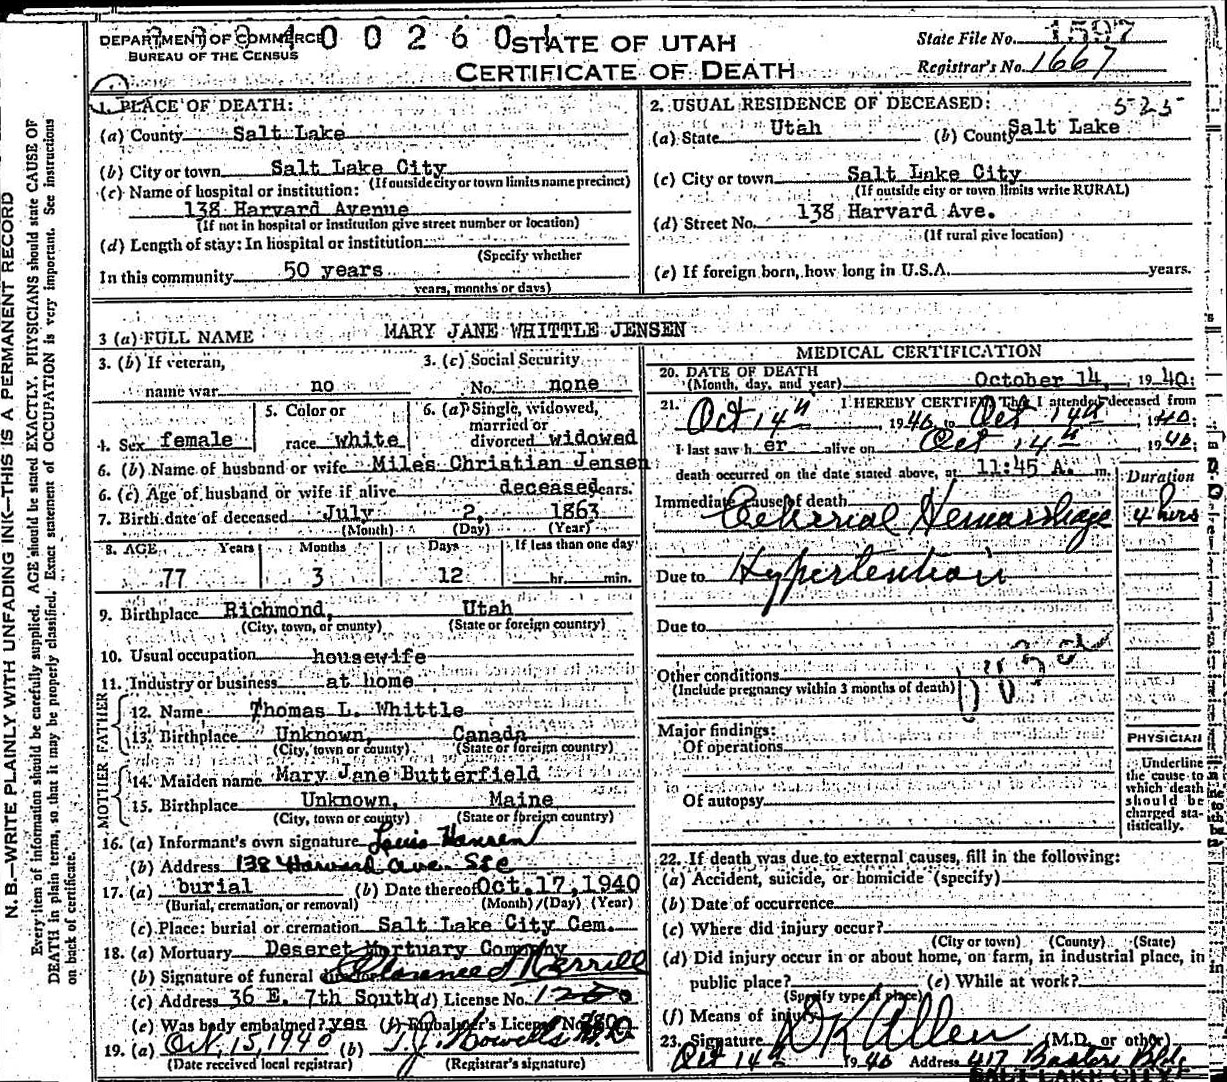 DEPARTMENT OF COMMERCE
BUREAU OF THE CENSUS
400260
STATE OF UTAH
CERTIFICATE OF DEATH
State File No. 1597
Registrar's No. 1667
N. B.—WRITE PLAINLY WITH UNFADING INK—THIS IS A PERMANENT RECORD
Every item of information should be carefully supplied. AGE should be stated EXACTLY. PHYSICIANS should state CAUSE OF
DEATH in plain terms, so that it may be properly classified. Exact statement of OCCUPATION is very important. See instructions
on back of certificate.
1. PLACE OF DEATH:
(a) County Salt Lake
(b) City or town Salt Lake City
(If outside city or town limits name precinct)
(c) Name of hospital or institution:
138 Harvard Avenue
(If not in hospital or institution give street number or location)
(d) Length of stay: In hospital or institution
(Specify whether
In this community 50 years
years, months or days)
2. USUAL RESIDENCE OF DECEASED: 525
(a) State Utah (b) County Salt Lake
(c) City or town Salt Lake City
(If outside city or town limits write RURAL)
(d) Street No. 138 Harvard Ave.
(If rural give location)
(e) If foreign born, how long in U.S.A. years.
3 (a) FULL NAME MARY JANE WHITTLE JENSEN
3. (b) If veteran, 3. (c) Social Security
name war no No. none
4. Sex female 5. Color or race white 6. (a) Single, widowed, married or divorced widowed
6. (b) Name of husband or wife Miles Christian Jensen
6. (c) Age of husband or wife if alive deceased years.
7. Birth date of deceased July 2, 1863
(Month) (Day) (Year)
8. AGE Years Months Days If less than one day
77 3 12 hr. min.
9. Birthplace Richmond, Utah
(City, town, or county) (State or foreign country)
10. Usual occupation housewife
11. Industry or business at home
FATHER
12. Name Thomas L. Whittle
13. Birthplace Unknown, Canada
(City, town or county) (State or foreign country)
MOTHER
14. Maiden name Mary Jane Butterfield
15. Birthplace Unknown, Maine
(City, town or county) (State or foreign country)
16. (a) Informant's own signature Louis Hansen
(b) Address 138 Harvard Ave. SLC
17. (a) burial (b) Date thereof Oct. 17, 1940
(Burial, cremation, or removal) (Month) (Day) (Year)
(c) Place: burial or cremation Salt Lake City Cem.
18. (a) Mortuary Deseret Mortuary Company
(b) Signature of funeral director Clarence Merrill
(c) Address 36 E. 7th South (d) License No.
(e) Was body embalmed? yes (f) Embalmer's License No.
19. (a) Oct. 15, 1940 (b) T. J. Howells
(Date received local registrar) (Registrar's signature)
MEDICAL CERTIFICATION
20. DATE OF DEATH
(Month, day, and year) October 14, 1940:
21. I HEREBY CERTIFY That I attended deceased from
Oct 14th, 1940 to Oct 14th, 1940:
I last saw h er alive on Oct 14th 1940
death occurred on the date stated above, at 11:45 A. m.
Duration
Immediate cause of death
Cerebrial Hemorrhage 4 hrs
Due to Hypertention
Due to
Other conditions
(Include pregnancy within 3 months of death)
Major findings:
Of operations
Of autopsy
PHYSICIAN
Underline
the cause to
which death
should be
charged sta-
tistically.
22. If death was due to external causes, fill in the following:
(a) Accident, suicide, or homicide (specify)
(b) Date of occurrence
(c) Where did injury occur?
(City or town) (County) (State)
(d) Did injury occur in or about home, on farm, in industrial place, in
public place? (e) While at work?
(Specify type of place)
(f) Means of injury
23. Signature D K Allen (M.D. or other)
Oct 14th 1940 Address 417 Bldg
SALT LAKE CITY